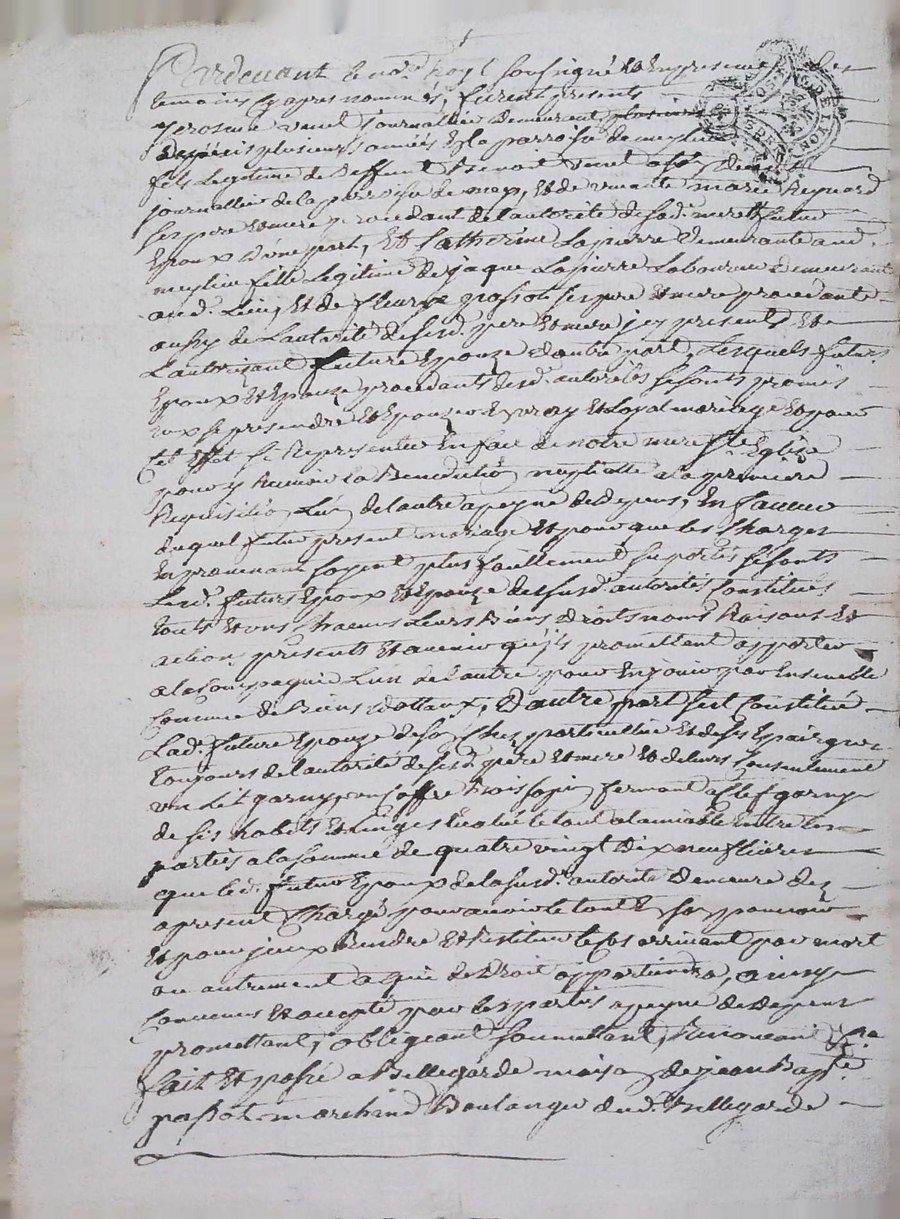 Pardevant le no.re Royal soussigné & En presence des
temoins Cy apres nommés, furent presents
Jerosme Vinel journallier demeurant
depuis plusieurs années En la parroisse de meylieu
fils Legitime de deffunt Benoit Vinel
journallier de la parroisse de, et de marie Reynard
ses pere et mere procedant de l'autorité de sad. mere futur
Epoux d'une part, Et Catherine Lapierre demeurante aud.
meylieu fille Legitime de jaque Lapierre Laboureur demeurant
aud. Lieu, et de fleurye passot ses pere et mere procedante
aussy de L'autorité de sesd. pere et mere jcy presents, et
L'autorizant future Epouze d'autre part, Lesquels futurs
Epoux et Epouze procedants desd. autorités se sonts promis
eux se prendre et Epouzer En vray et Loyal mariage et pour
Cet Effet se Representer En face de notre mere S.te Eglise
pour y Recevoir La Benediction nuptialle a la premiere
Requisition L'un de l'autre a peyne de depens, En faveur
duquel futur present mariage et pour que les Charges
En provenant soyent plus facillement suportés se sonts
Lesd. futurs Epoux et Epouze desusd. autorités Constitués
touts et uns Chacuns Leurs Biens droits noms Raisons et
actions presents et avenir qu'jls promettent apporter
a la Compagnie L'un de L'autre pour En jouir par Ensemble
Comme de Biens dottaux, d'autre part s'est Constitué
Lad. future Epouze de son Chef particullier et de ses Epargnes
toujours de l'autorité de sesd. pere et mere et de leurs Consentement
un Lit garny, un Coffre Bois sapin fermant a Clef garny
de ses habits et Linges Evalué le tout a l'amiable entre les
parties a la somme de quatre vingt dix neuf Livres
que led. futur Epoux de la susd. autorité demeure dez
a present Chargé pour avoir le tout En son pouvoir
Et pour jceux Rendre et Restituer le Cas arrivant par mort
ou autrement a qui de droit appartiendra, ainsy
Convenus et accepté par les parties a peyne de depens
promettant, obligeant, soumettant, Renonceant &.a
fait et passé a Bellegarde maison de jean Bap.te
passot marchand Boulanger dud. Bellegarde